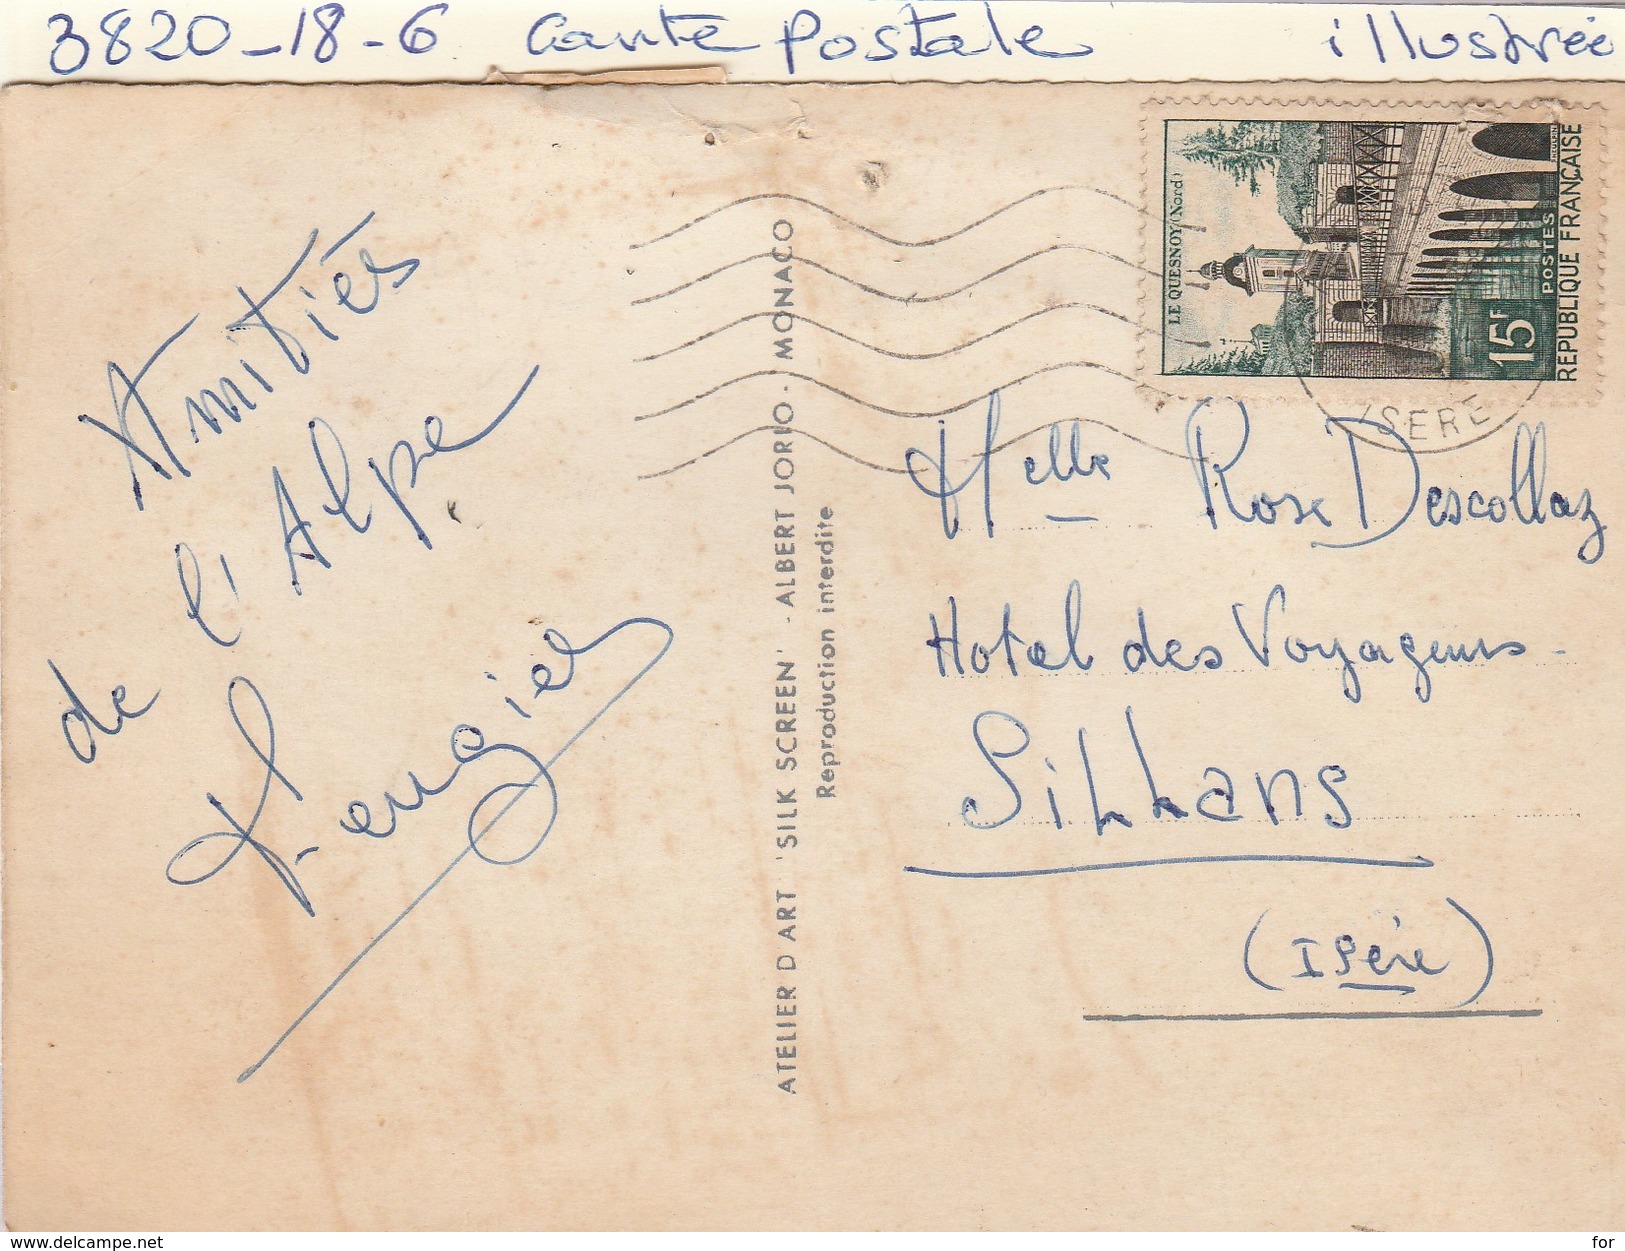 3820-18-6 Carte Postale illustrée
LE QUESNOY (Nord)
15F
POSTES
REPUBLIQUE FRANÇAISE
ISERE
Amitiés
de l'Alpe
ATELIER D'ART 'SILK SCREEN' - ALBERT JORIO - MONACO
Reproduction interdite
Melle Rose Descollaz
Hotel des Voyageurs
SiLLans
(Isère)
www.delcampe.net
for